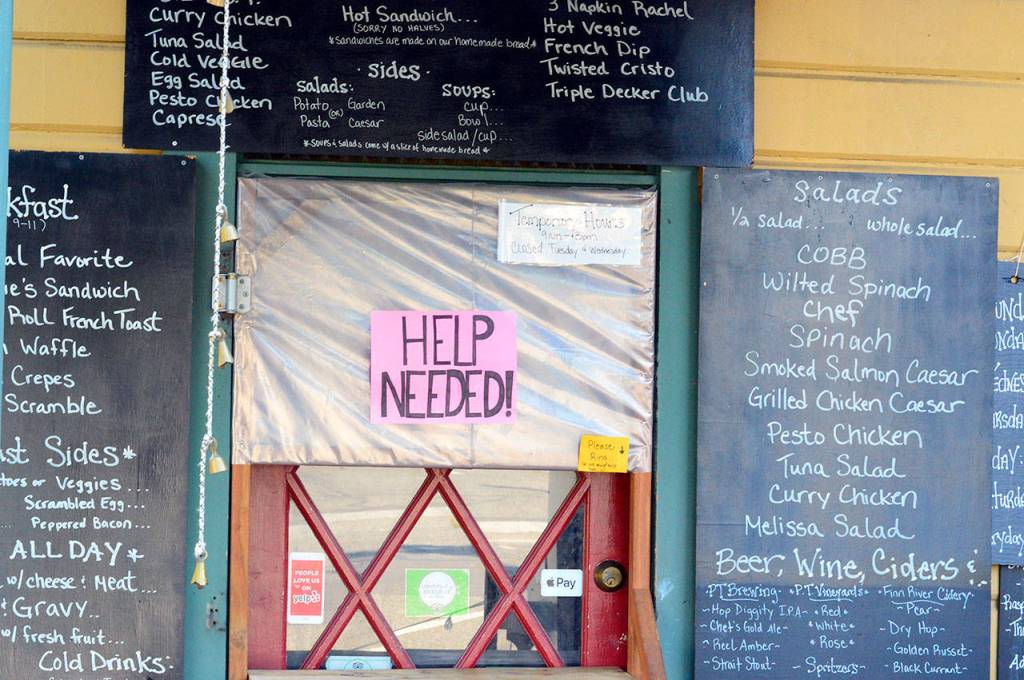 Curry Chicken
Tuna Salad
Cold Veggie
Egg Salad
Pesto Chicken
Caprese
Hot Sandwich...
(SORRY NO HALVES)
*Sandwiches are made on our homemade bread*
· sides ·
salads:
Potato (OR) Garden
Pasta Caesar
soups:
cup...
Bowl...
side salad/cup...
*SOUPS & salads come w/ a slice of homemade bread*
3 Napkin Rachel
Hot Veggie
French Dip
Twisted Cristo
Triple Decker Club
kfast
9-11)
al Favorite
e's Sandwich
Roll French Toast
Waffle
Crepes
Scramble
st Sides*
toes or Veggies...
Scrambled Egg...
Peppered Bacon...
ALL DAY*
w/ cheese & Meat...
& Gravy...
w/ fresh fruit...
Cold Drinks:
Temporary Hours
Closed Tuesday & Wednesday
HELP
NEEDED!
Please
Ring
PEOPLE
LOVE US
ON
yelp
Pay
Salads
1/2 salad... whole salad...
COBB
Wilted Spinach
Chef
Spinach
Smoked Salmon Caesar
Grilled Chicken Caesar
Pesto Chicken
Tuna Salad
Curry Chicken
Melissa Salad
Beer, Wine, Ciders &
PT Brewing
- Hop Diggity I.P.A
- Chef's Gold Ale -
- Reel Amber -
- Strait Stout -
P.T. Vineyards
* Red *
* White *
* Rose *
- Spritzers -
• Finn River Cidery •
- Pear -
- Dry Hop -
- Golden Russet -
- Black Currant -